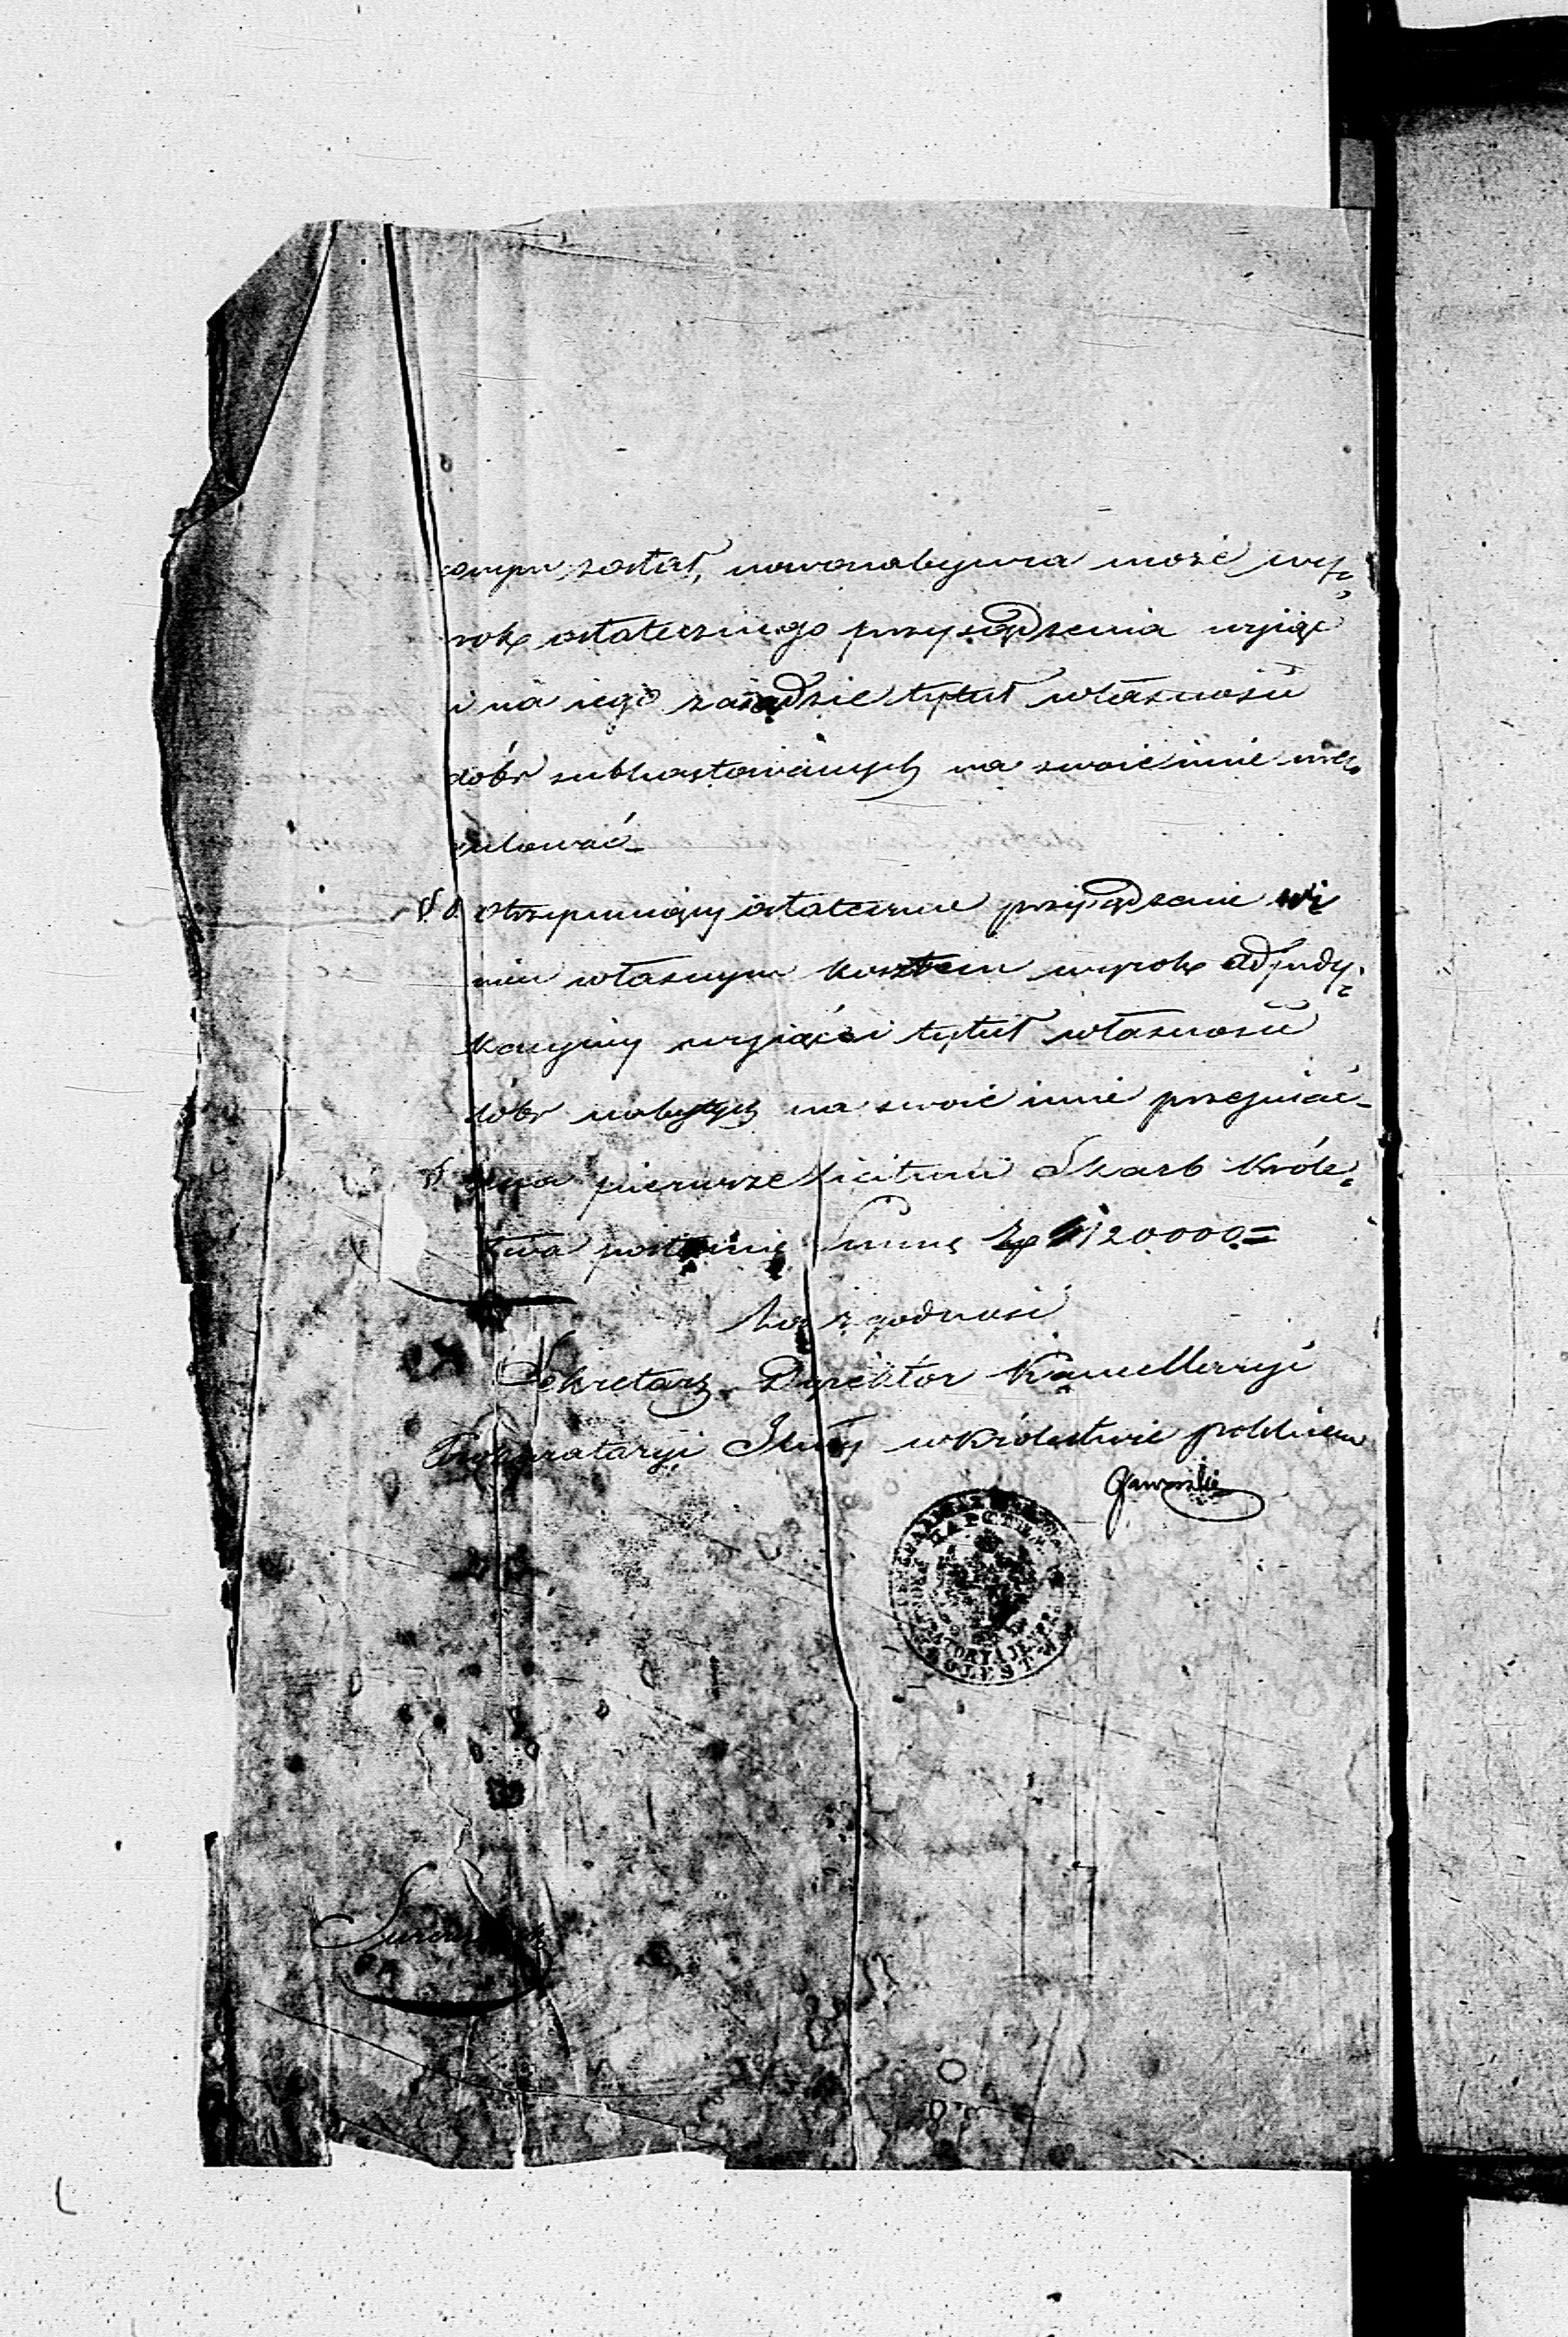 conym został, nowonabywca może wy-
rok ostatecznego przysądzenia wyjąć
i na iego zasadzie tytuł własności
dóbr subhastowanych na swoie imie ure-
gulować
§ 8 Otrzymuiący ostateczne przysądzenie wi-
nien własnym kosztem wyrok adjudy-
kacyiny wyjąć i tytuł własności
dóbr nabytych na swoie imie przepisać
§ na pierwsze licitum Skarb Króle-
stwa postąpił Summę Zp 120000
Za zgodność
Sekretarz Dyrektor Kancellaryi
Prokuratoryi Jlney w Królestwie polskiem
Jaworski